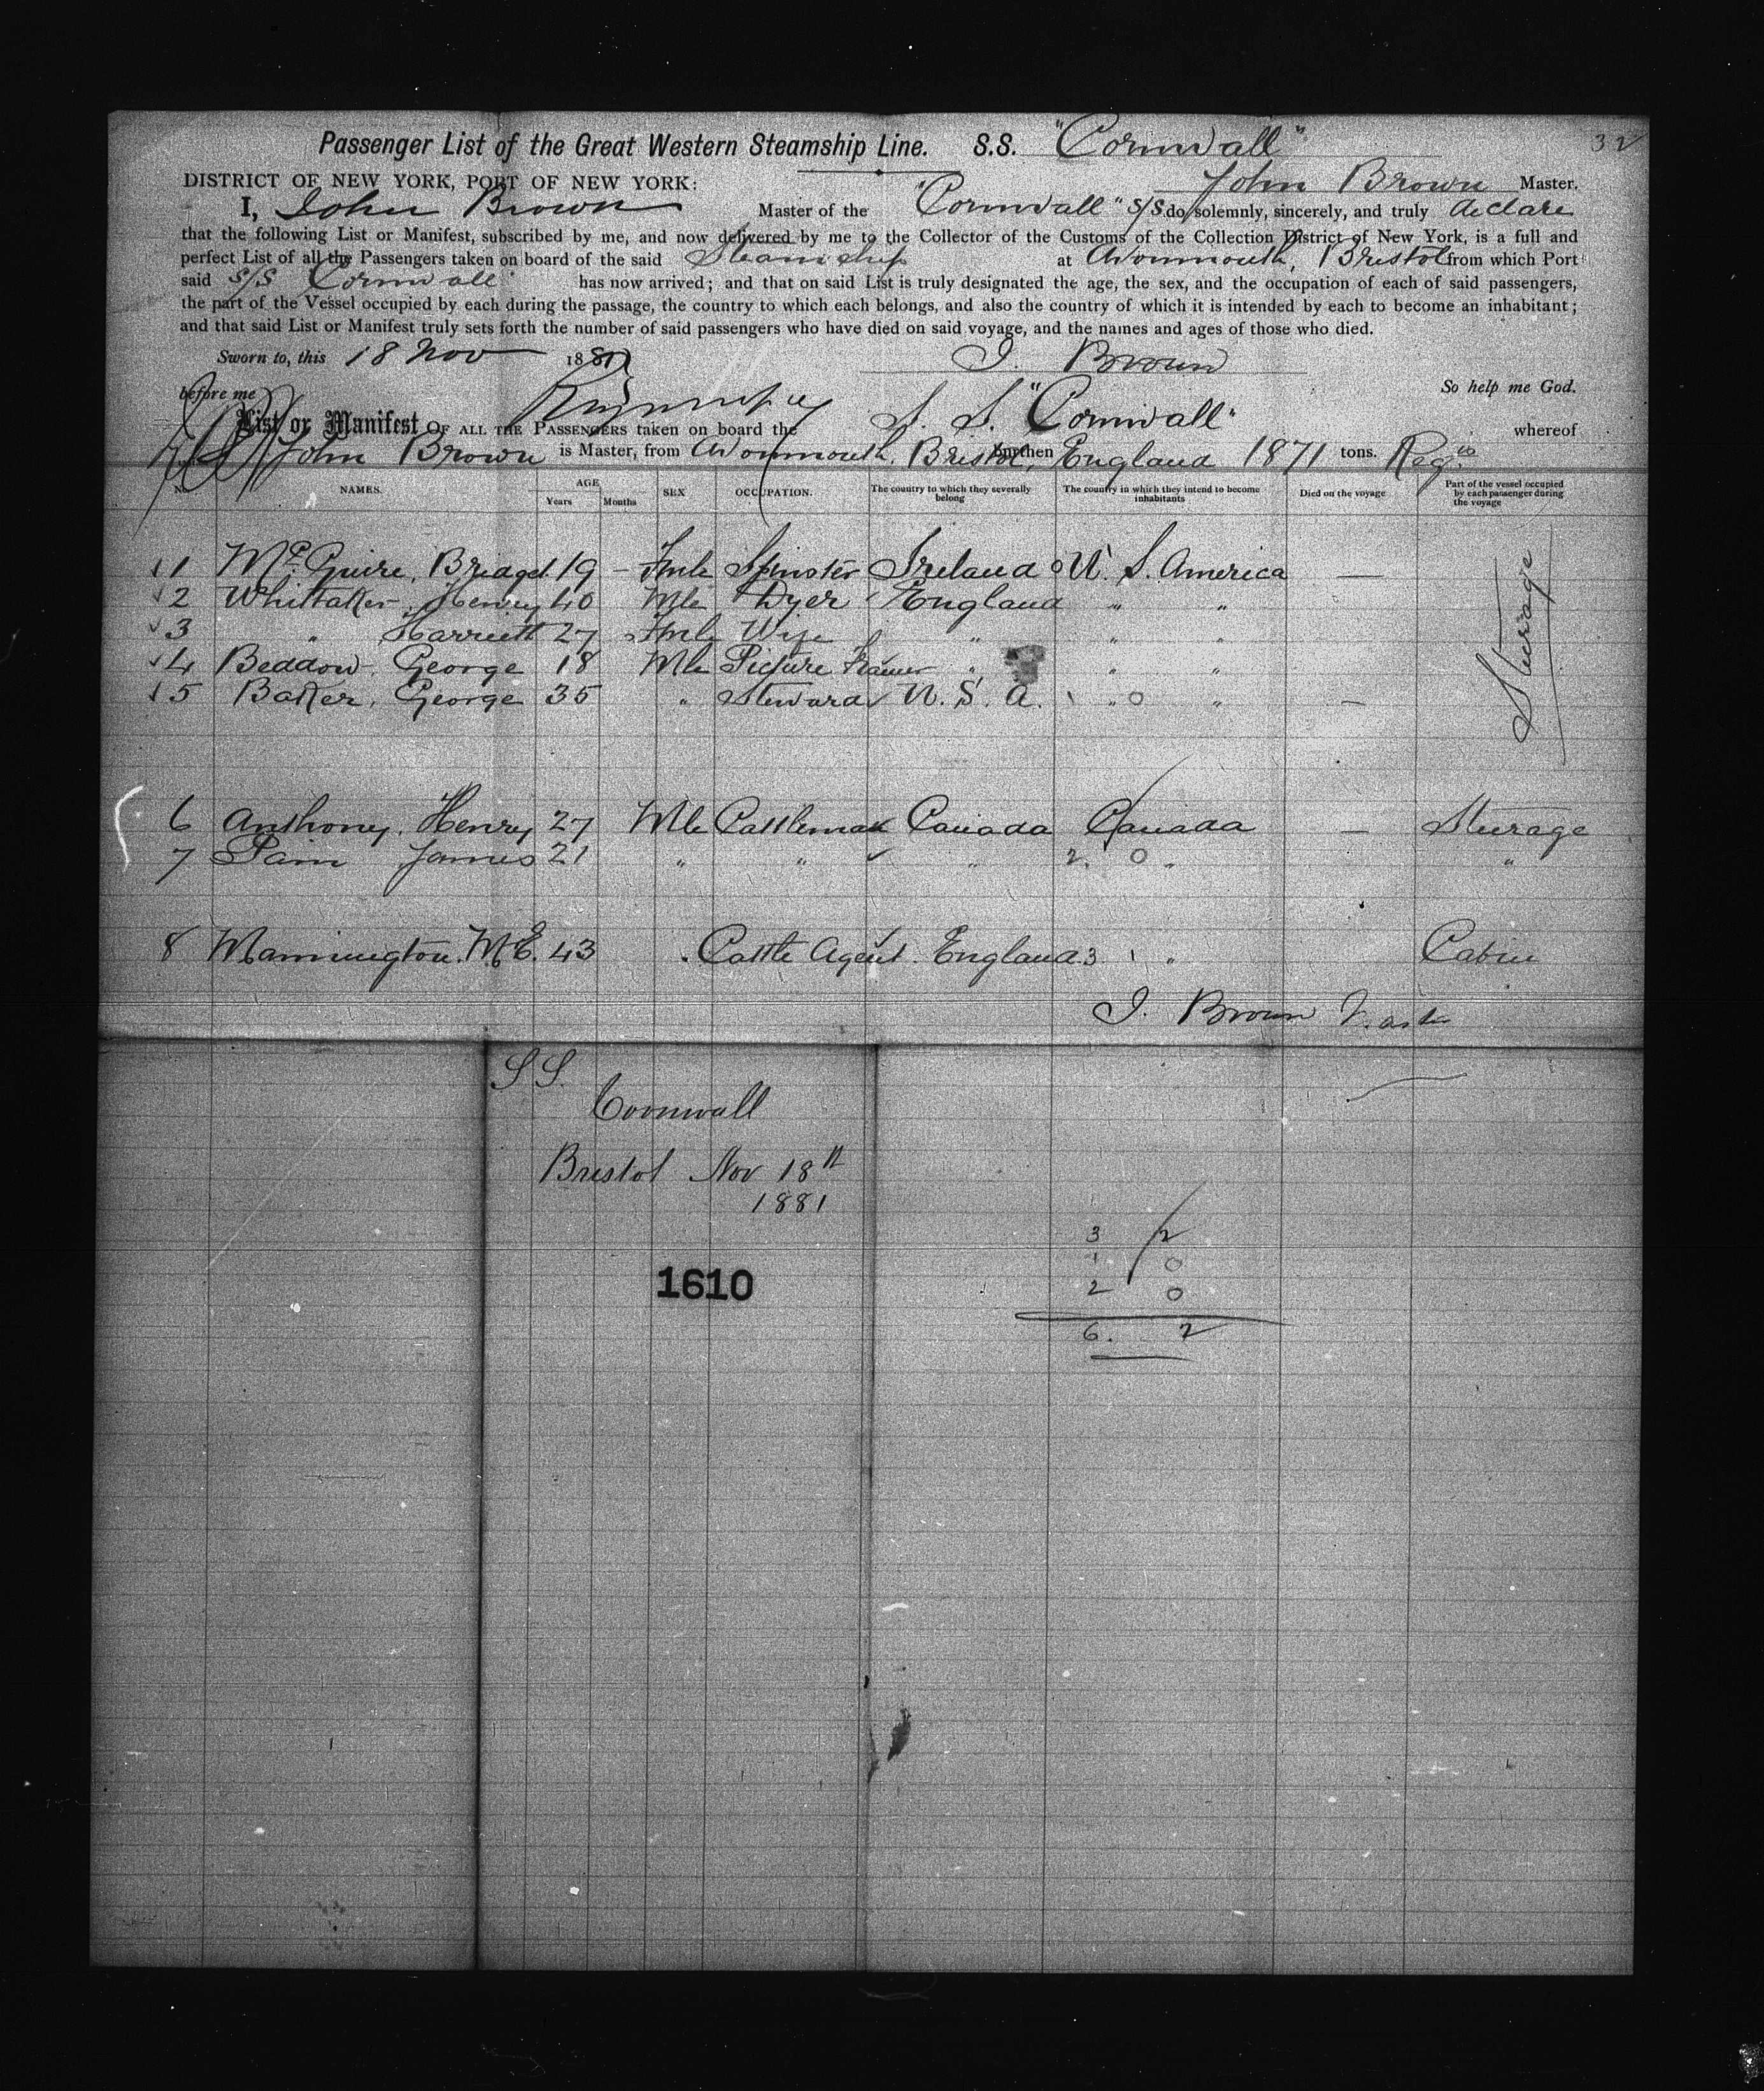 Passenger List of the Great Western Steamship Line. S.S. "Cornwall"
32
DISTRICT OF NEW YORK, PORT OF NEW YORK: John Brown Master.
I, John Brown Master of the "Cornwall" S/S do solemnly, sincerely, and truly declare
that the following List or Manifest, subscribed by me, and now delivered by me to the Collector of the Customs of the Collection District of New York, is a full and
perfect List of all the Passengers taken on board of the said Steamship at Avonmouth, Bristol from which Port
said S/S Cornwall has now arrived; and that on said List is truly designated the age, the sex, and the occupation of each of said passengers,
the part of the Vessel occupied by each during the passage, the country to which each belongs, and also the country of which it is intended by each to become an inhabitant;
and that said List or Manifest truly sets forth the number of said passengers who have died on said voyage, and the names and ages of those who died.
Sworn to, this 18 Nov 1881 J. Brown
before me So help me God.
List or Manifest OF ALL THE PASSENGERS taken on board the S. S. "Cornwall" whereof
John Brown is Master, from Avonmouth, Bristol, England Burthen 1871 tons. Reg
No. NAMES. AGE Years Months SEX OCCUPATION. The country to which they severally belong The country in which they intend to become inhabitants Died on the voyage Part of the vessel occupied by each passenger during the voyage
1 McGuire, Bridget 19 - Fmle Spinster Ireland U. S. America —
2 Whittaker, Henry 40 Mle Dyer England " "
3 " Harriett 27 Fmle Wife " " "
4 Beddow, George 18 Mle Picture Framer " " "
5 Baker, George 35 " Steward U. S. A. " 0 " —
Steerage
6 Anthony, Henry 27 Mle Cattleman Canada Canada — Steerage
7 Pain James 21 " " " 2. 0 " "
8 Mannington, M. E. 43 " Cattle Agent. England 3 " Cabin
J. Brown Master
S S.
Cornwall
Bristol Nov 18th
1881
1610
3 2
1 0
2 0
6. 2